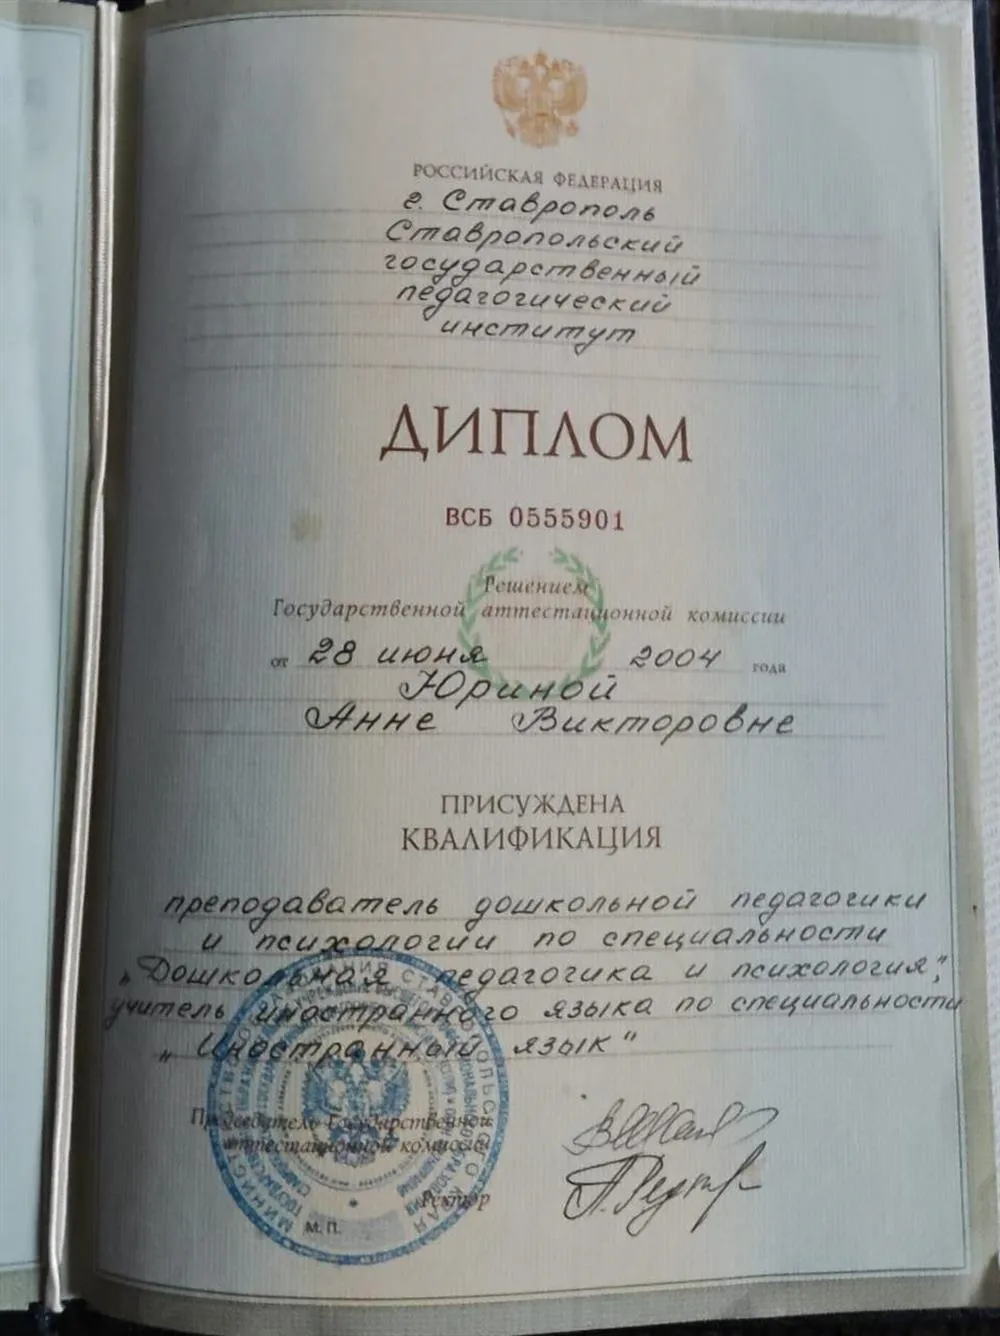 РОССИЙСКАЯ ФЕДЕРАЦИЯ
г. Ставрополь
Ставропольский
государственный
педагогический
институт
ДИПЛОМ
ВСБ 0555901
Решением
Государственной аттестационной комиссии
от 28 июня 2004 года
Юриной
Анне Викторовне
ПРИСУЖДЕНА
КВАЛИФИКАЦИЯ
преподаватель дошкольной педагогики
и психологии по специальности
„Дошкольная педагогика и психология",
учитель иностранного языка по специальности
„Иностранный язык"
Председатель Государственной
аттестационной комиссии
Ректор
М. П.